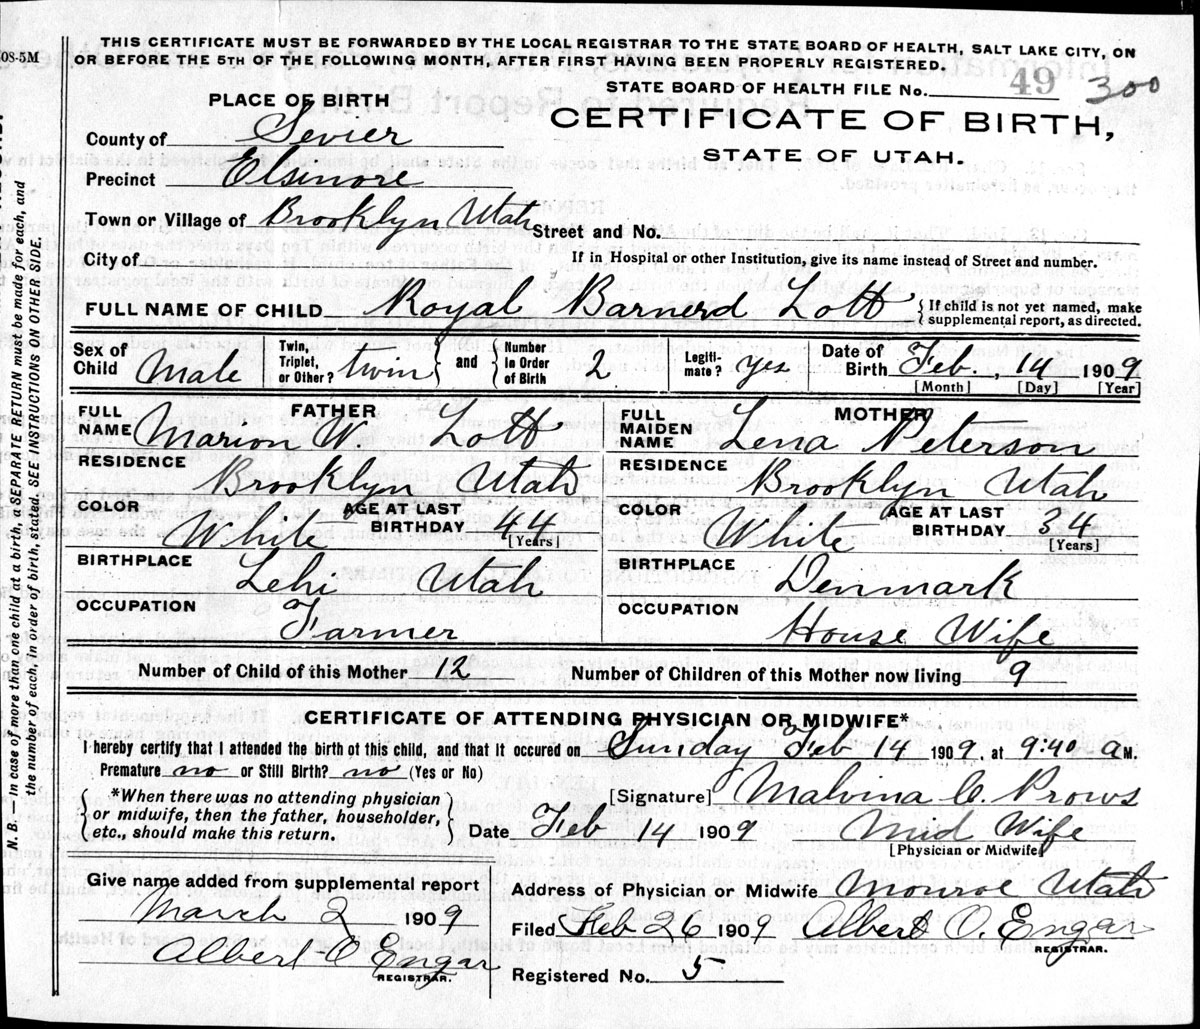 08-5M
THIS CERTIFICATE MUST BE FORWARDED BY THE LOCAL REGISTRAR TO THE STATE BOARD OF HEALTH, SALT LAKE CITY, ON
OR BEFORE THE 5TH OF THE FOLLOWING MONTH, AFTER FIRST HAVING BEEN PROPERLY REGISTERED.
STATE BOARD OF HEALTH FILE No. 49 300
PLACE OF BIRTH
CERTIFICATE OF BIRTH,
STATE OF UTAH.
County of Sevier
Precinct Elsinore
Town or Village of Brooklyn Utah Street and No.
City of If in Hospital or other Institution, give its name instead of Street and number.
FULL NAME OF CHILD Royal Barnerd Lott { If child is not yet named, make
supplemental report, as directed.
Sex of Child Male Twin, Triplet, or Other? twin and Number In Order of Birth 2 Legiti-mate? yes Date of Birth Feb. , 14 1909
[Month] [Day] [Year]
FATHER
FULL NAME Marion W. Lott
MOTHER
FULL MAIDEN NAME Lena Peterson
RESIDENCE Brooklyn Utah
RESIDENCE Brooklyn Utah
COLOR White AGE AT LAST BIRTHDAY 44 [Years]
COLOR White AGE AT LAST BIRTHDAY 34 [Years]
BIRTHPLACE Lehi Utah
BIRTHPLACE Denmark
OCCUPATION Farmer
OCCUPATION House Wife
Number of Child of this Mother 12 Number of Children of this Mother now living 9
CERTIFICATE OF ATTENDING PHYSICIAN OR MIDWIFE*
I hereby certify that I attended the birth of this child, and that it occured on Sunday Feb 14 1909, at 9:40 a M.
Premature no or Still Birth? no (Yes or No)
*When there was no attending physician
or midwife, then the father, householder,
etc., should make this return.
[Signature] Malvina C. Prows
Date Feb 14 1909 Mid Wife
[Physician or Midwife]
Give name added from supplemental report
March 2 1909
Albert O Engar
REGISTRAR.
Address of Physician or Midwife Monroe Utah
Filed Feb 26 1909 Albert O. Engar
REGISTRAR.
Registered No. 5
N. B. In case of more than one child at a birth, a SEPARATE RETURN must be made for each, and
the number of each, in order of birth, stated. SEE INSTRUCTIONS ON OTHER SIDE.